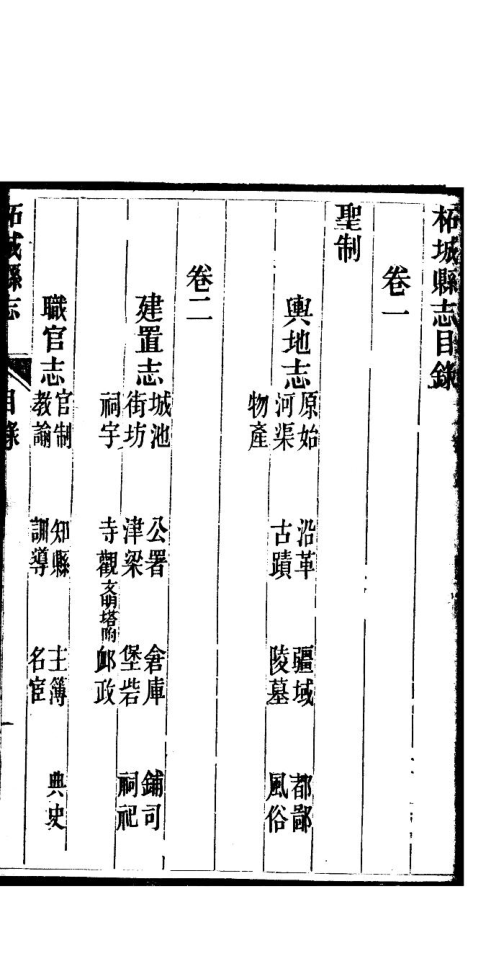 柘城縣志目錄
卷一
聖制
輿地志
原始 沿革 疆域 都鄙
河渠 古蹟 陵墓 風俗
物產
卷二
建置志
城池 公署 倉庫 鋪司
街坊 津梁 堡砦 祠祀
祠宇 寺觀 文明塔附 郵政
職官志
官制 知縣 主簿 典史
教諭 訓導 名宦
柘城縣志 目錄 一